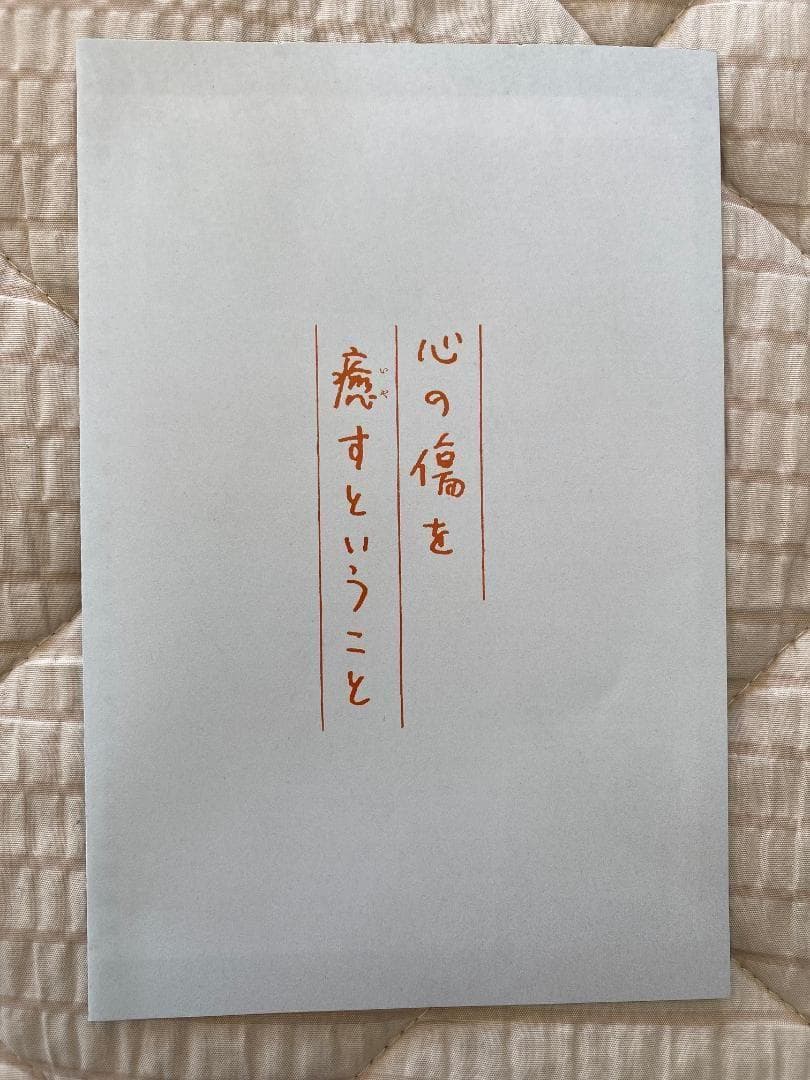 心の傷を
癒すということ
いや